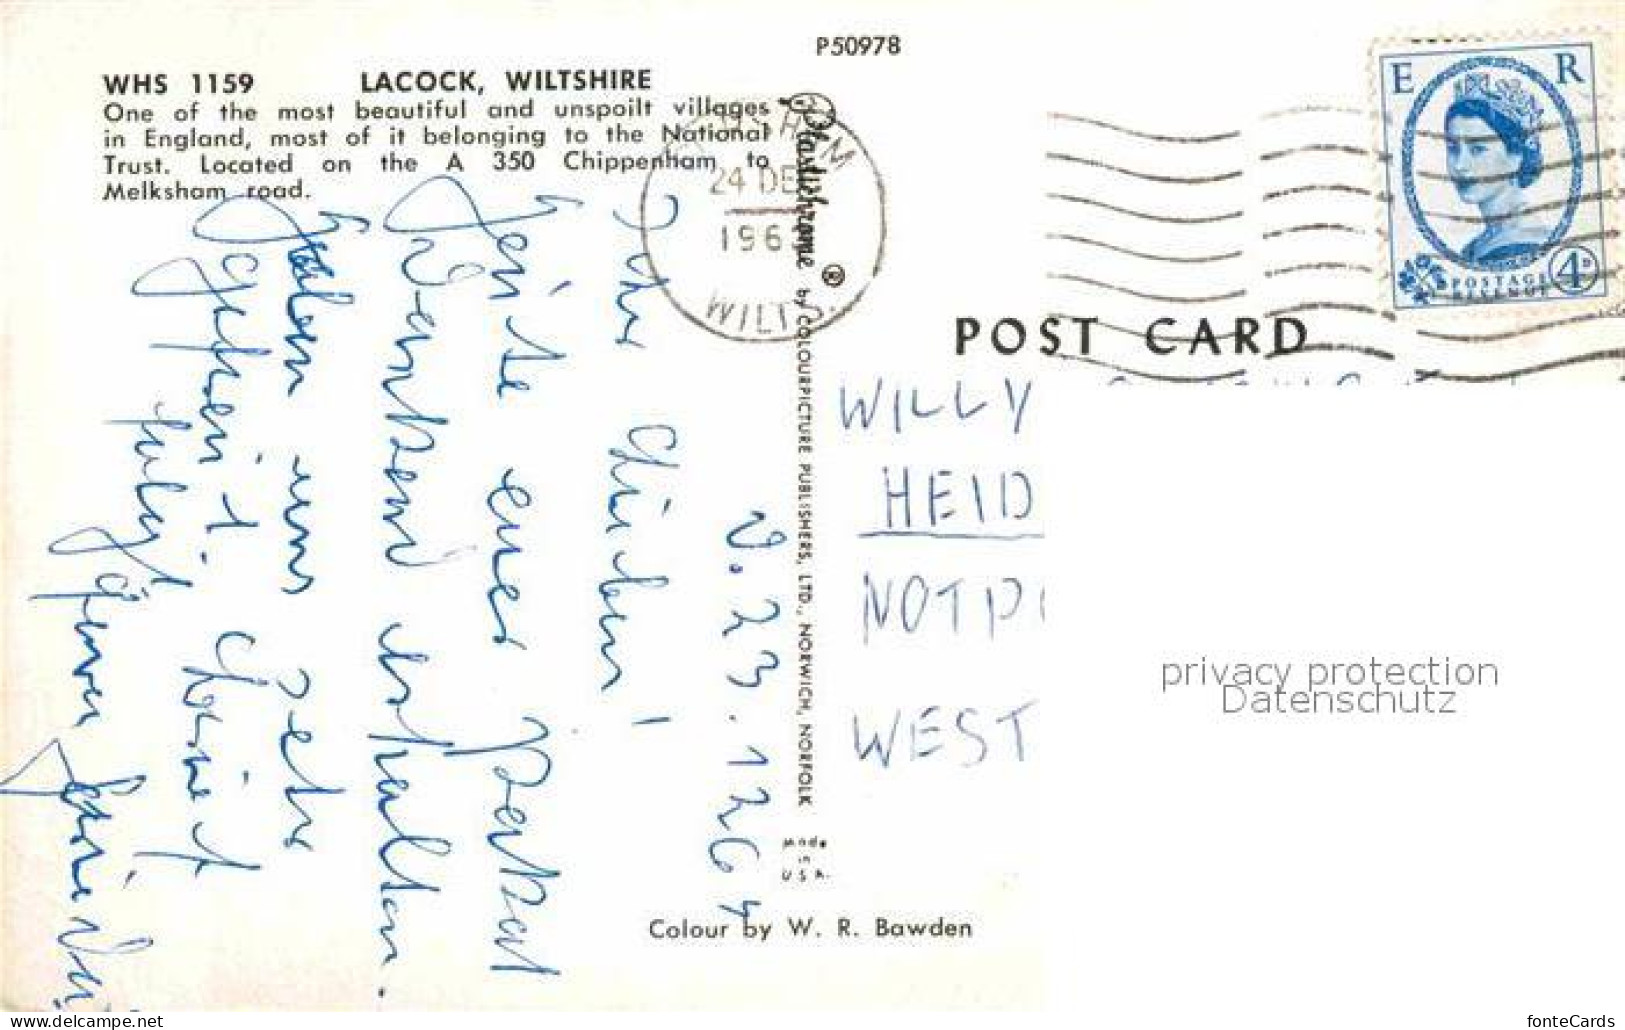 P50978
WHS 1159 LACOCK, WILTSHIRE
One of the most beautiful and unspoilt villages
in England, most of it belonging to the National
Trust. Located on the A 350 Chippenham to
Melksham road.
24 DE
196
WILTS.
Plastichrome ®
by COLOURPICTURE PUBLISHERS, LTD., NORWICH, NORFOLK
Made
in
U S A.
E R
POSTAGE
REVENUE
4D
POST CARD
WILLY
HEID
NOTP
WEST
v. 23.1264
Ihr Lieben!
Heute euer Packet
dankend erhalten.
haben uns sehr
Colour by W. R. Bawden
privacy protection
Datenschutz
www.delcampe.net
fonteCards